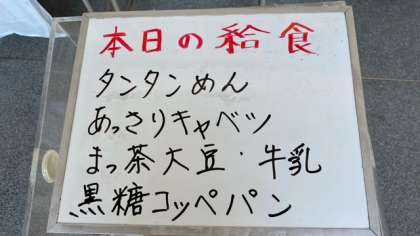 本日の給食
タンタンめん
あっさりキャベツ
まっ茶大豆・牛乳
黒糖コッペパン